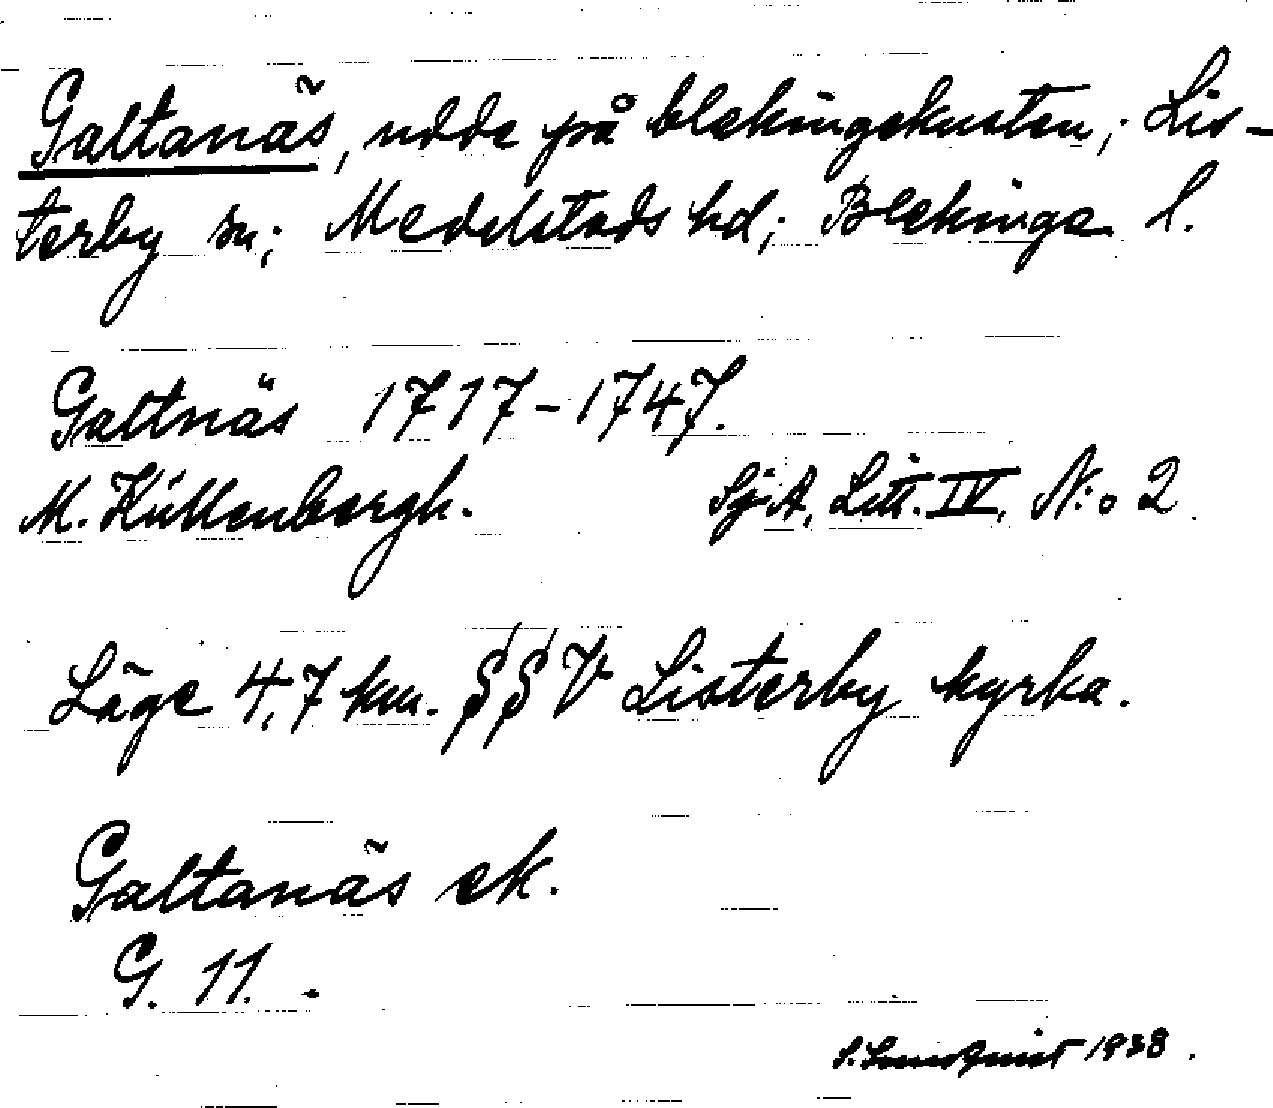 Galtanäs, udde på blekingekusten; Lis-
terby sn; Medelstads hd; Blekinge l.
Galtnäs 1717-1747.
M. Hüllenbergh. SjA, Litt. IV, N:o 2
Läge 4,7 km. SSV Listerby kyrka.
Galtanäs ek.
G. 11.
S. Lundquist 1938.